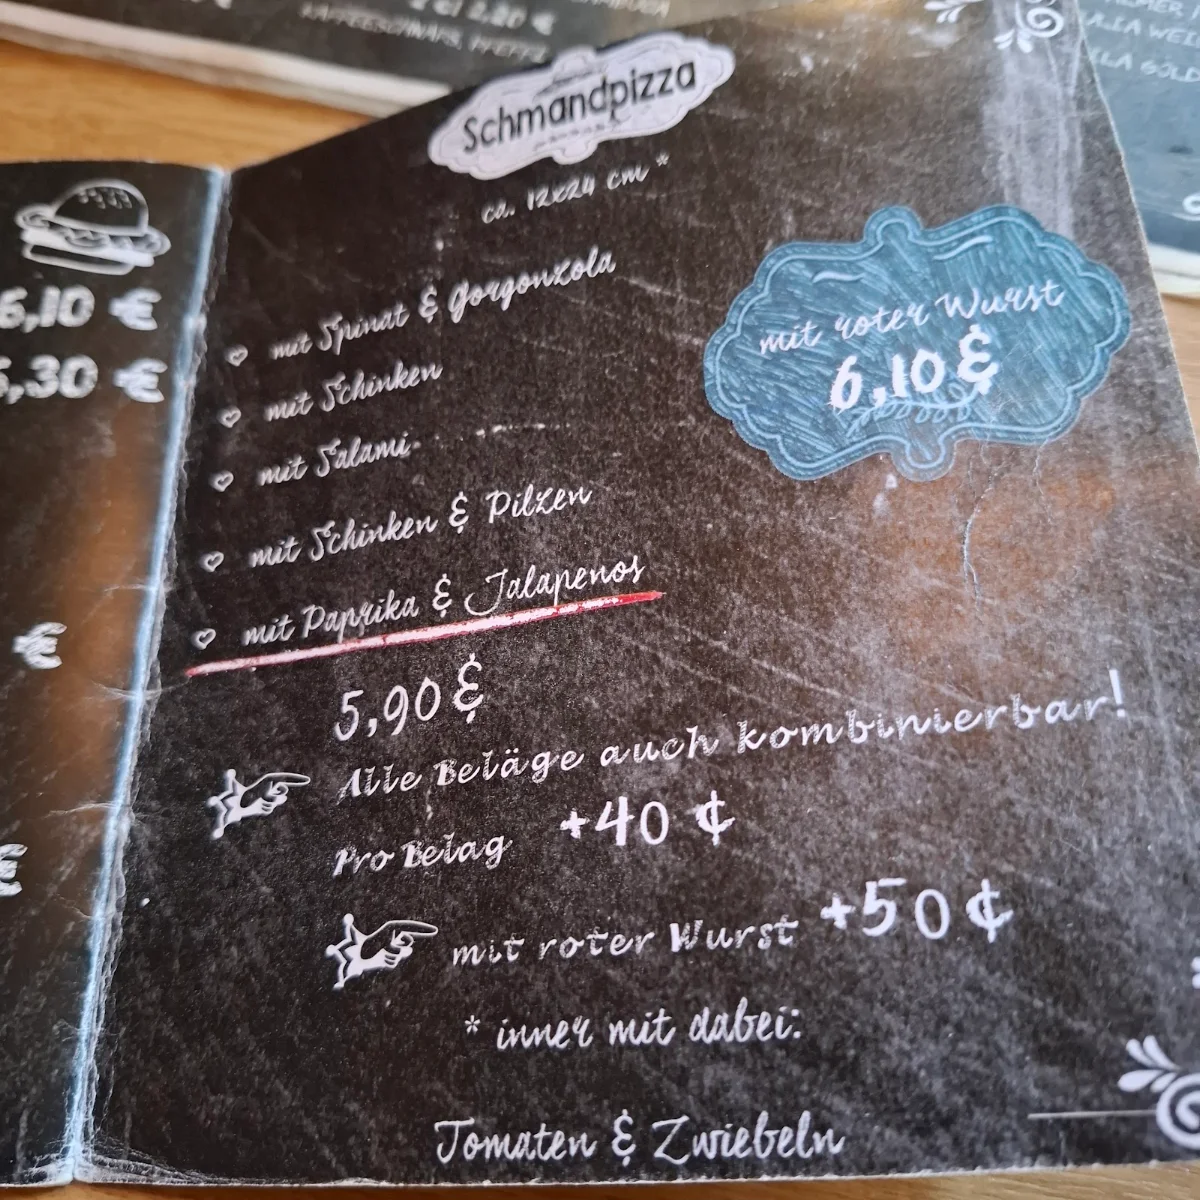 2 cl 2.20 €
KAFFEESCHNAPS, PFEFFI
Schmandpizza
ca. 12x24 cm *
6,10 €
5,30 €
€
€
mit Spinat & Gorgonzola
mit Schinken
mit Salami
mit Schinken & Pilzen
mit Paprika & Jalapenos
5,90 €
mit roter Wurst
6,10 €
Alle Beläge auch kombinierbar!
Pro Belag +40 ¢
mit roter Wurst +50 ¢
* inner mit dabei:
Tomaten & Zwiebeln